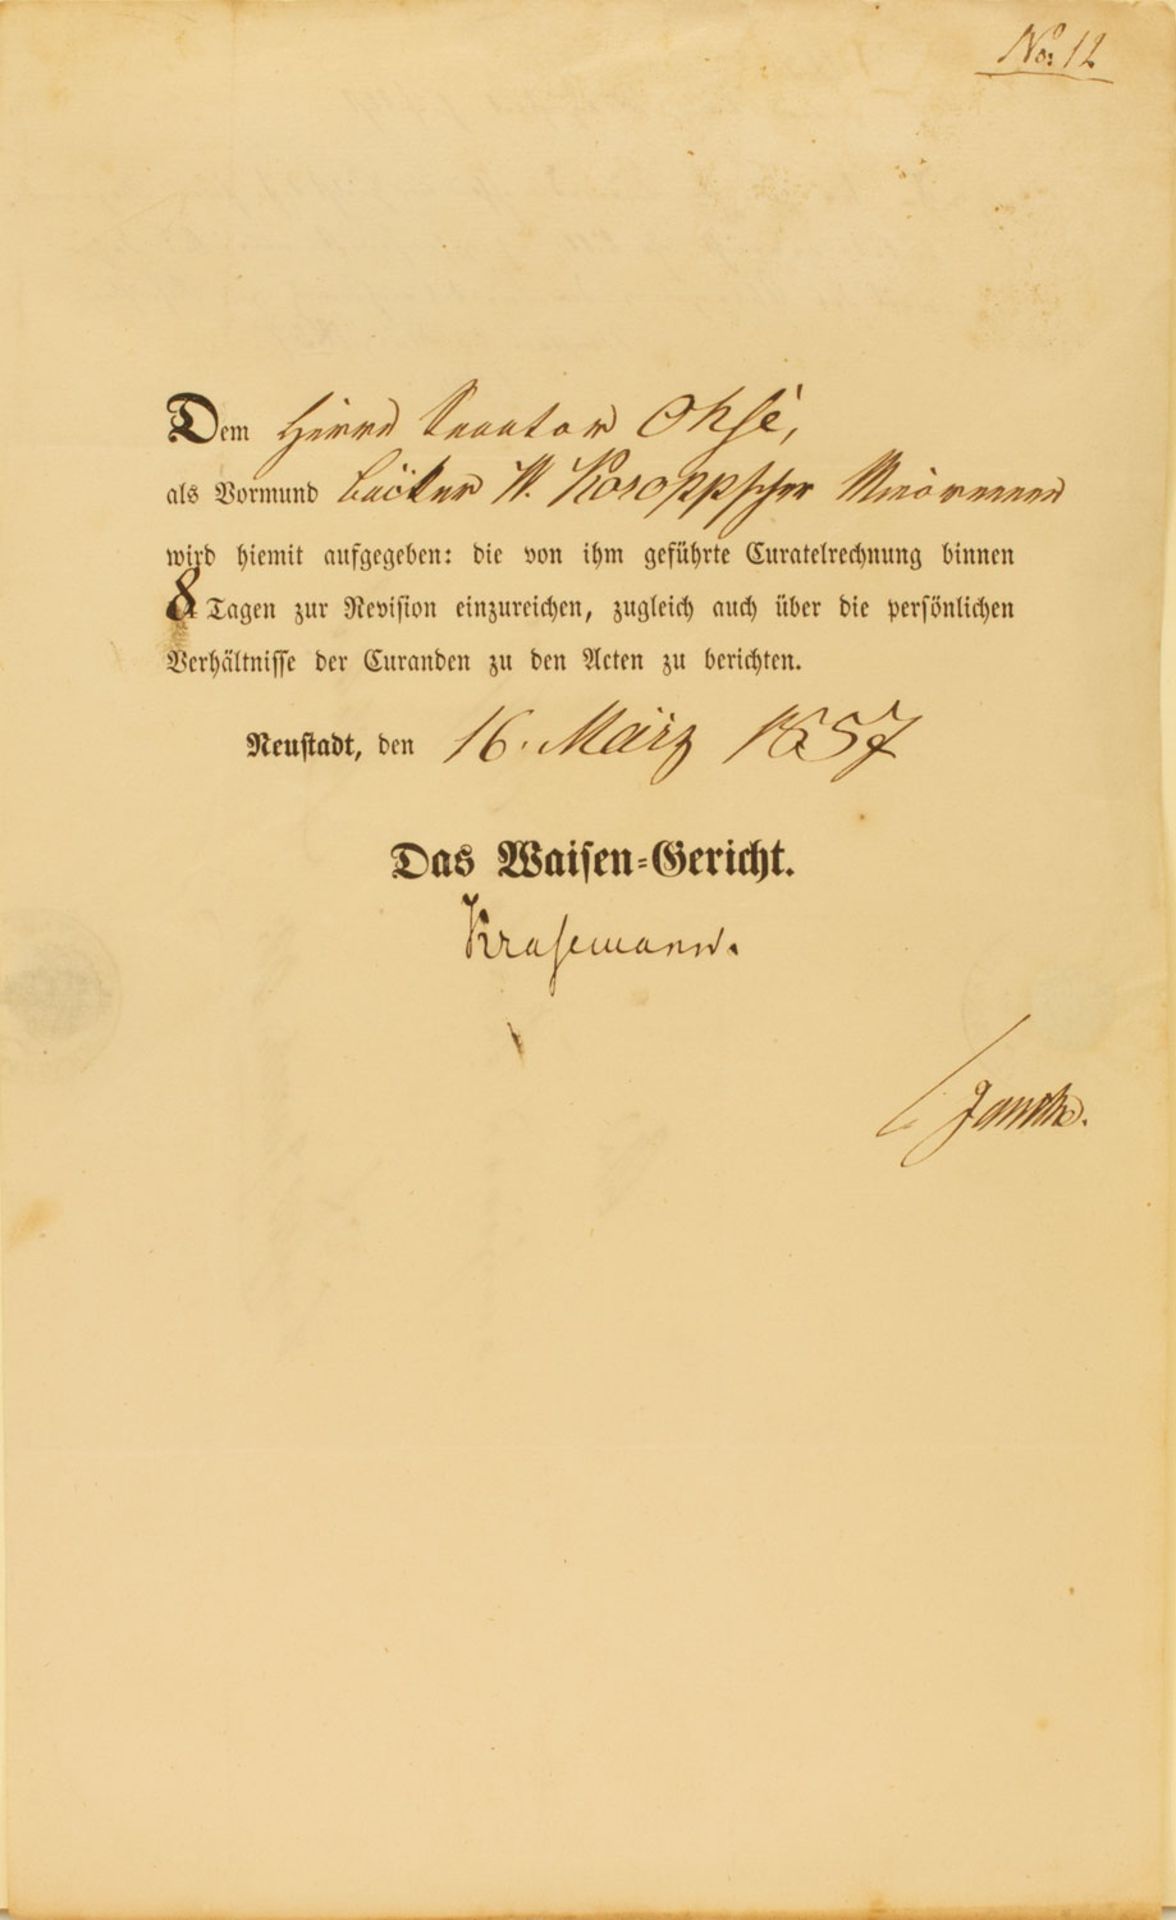 No. 12
Dem Herrn Senator Ohsé,
als Vormund Bäcker W. Kosoppscher Minorennen
wird hiemit aufgegeben: die von ihm geführte Curatelrechnung binnen
8 Tagen zur Revision einzureichen, zugleich auch über die persönlichen
Verhältnisse der Curanden zu den Acten zu berichten.
Neustadt, den 16. März 1857
Das Waisen-Gericht.
Krasemann.